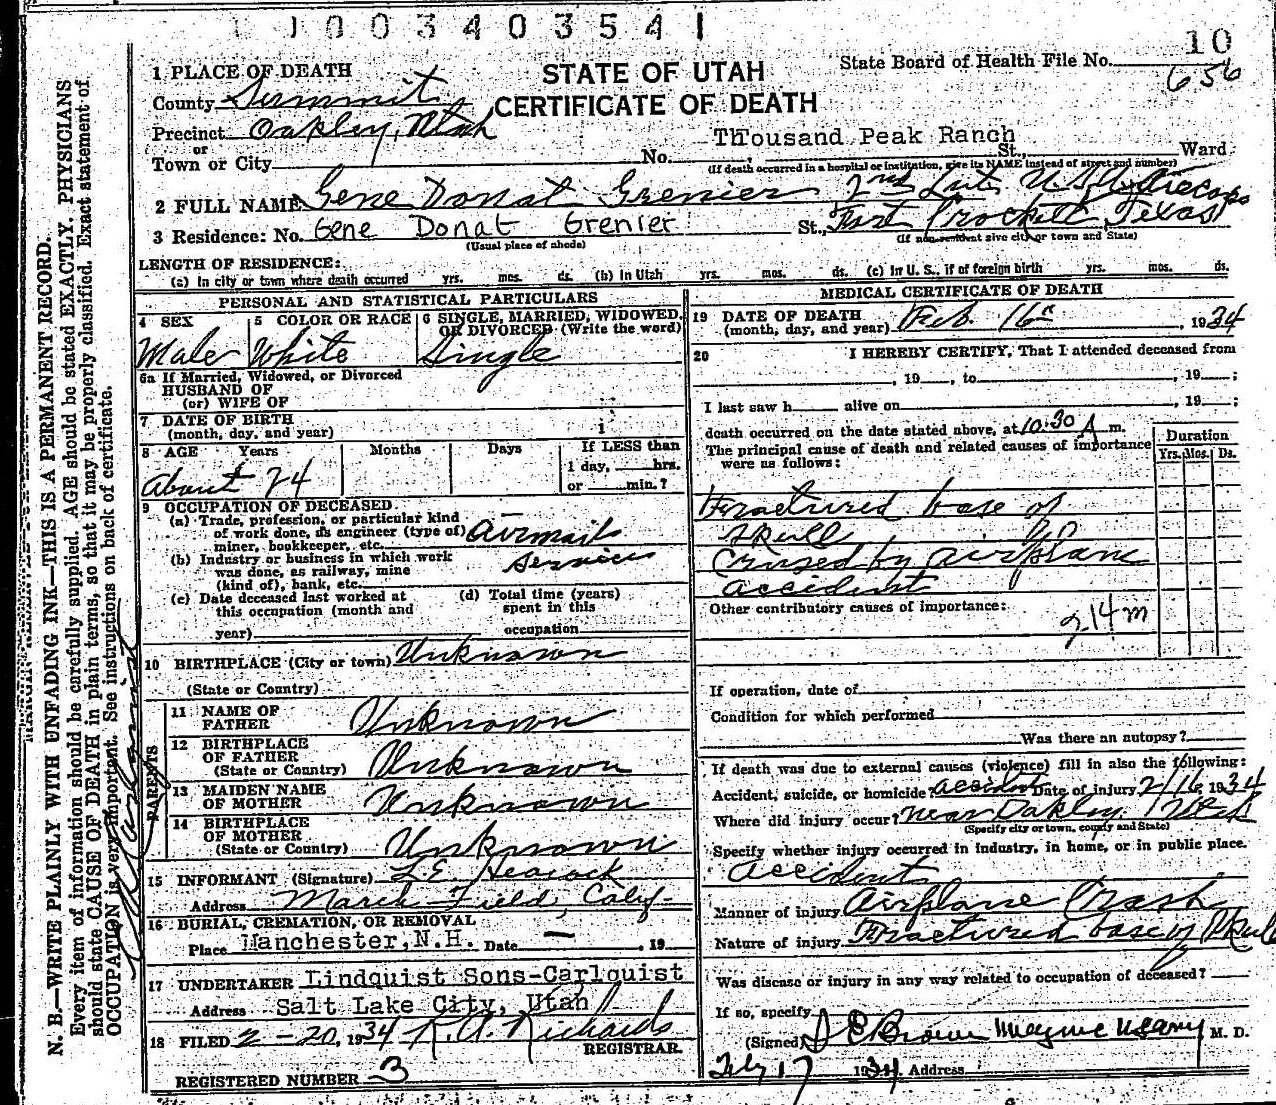 1003403541
10
State Board of Health File No. 656
STATE OF UTAH
CERTIFICATE OF DEATH
1 PLACE OF DEATH
County Summit
Precinct Oakley, Utah
or
Town or City No. Thousand Peak Ranch St., Ward
(If death occurred in a hospital or institution, give its NAME instead of street and number)
2 FULL NAME Gene Donat Grenier 2nd Lut. U.S.
3 Residence: No. Gene Donat Grenier St., Fort Crockett, Texas
(Usual place of abode) (If non-resident give city or town and State)
LENGTH OF RESIDENCE:
(a) In city or town where death occurred yrs. mos. ds. (b) In Utah yrs. mos. ds. (c) In U. S., if of foreign birth yrs. mos. ds.
PERSONAL AND STATISTICAL PARTICULARS
4 SEX 5 COLOR OR RACE 6 SINGLE, MARRIED, WIDOWED, OR DIVORCED (Write the word)
Male White Single
6a If Married, Widowed, or Divorced
HUSBAND OF
(or) WIFE OF
7 DATE OF BIRTH
(month, day, and year)
8 AGE Years Months Days If LESS than
1 day, hrs.
or min.?
About 24
9 OCCUPATION OF DECEASED
(a) Trade, profession, or particular kind
of work done, as engineer (type of)
miner, bookkeeper, etc. airmail
(b) Industry or business in which work
was done, as railway, mine
(kind of), bank, etc. service
(c) Date deceased last worked at
this occupation (month and
year)
(d) Total time (years)
spent in this
occupation
10 BIRTHPLACE (City or town) Unknown
(State or Country)
PARENTS
11 NAME OF
FATHER Unknown
12 BIRTHPLACE
OF FATHER
(State or Country) Unknown
13 MAIDEN NAME
OF MOTHER Unknown
14 BIRTHPLACE
OF MOTHER
(State or Country) Unknown
15 INFORMANT (Signature) L.E. Heacock
Address March Field, Calif-
16 BURIAL, CREMATION, OR REMOVAL
Place Manchester, N.H. Date — , 19
17 UNDERTAKER Lindquist Sons-Carlquist
Address Salt Lake City, Utah
18 FILED 2-20, 1934 Richards
REGISTRAR.
REGISTERED NUMBER 3
MEDICAL CERTIFICATE OF DEATH
19 DATE OF DEATH
(month, day, and year) Feb. 16, 1934
20 I HEREBY CERTIFY, That I attended deceased from
, 19 , to , 19 ;
I last saw h alive on , 19 ;
death occurred on the date stated above, at 10:30 A m.
The principal cause of death and related causes of importance
were as follows:
Duration
Yrs. Mos. Ds.
Fractured base of
skull
Caused by airplane
accident
Other contributory causes of importance:
If operation, date of
Condition for which performed
Was there an autopsy?
If death was due to external causes (violence) fill in also the following:
Accident, suicide, or homicide? accident Date of injury 2/16, 1934
Where did injury occur? near Oakley, Utah
(Specify city or town, county and State)
Specify whether injury occurred in industry, in home, or in public place.
accident
Manner of injury Airplane Crash
Nature of injury Fractured base of skull
Was disease or injury in any way related to occupation of deceased?
If so, specify
(Signed) Brown M. D.
Feby 17 1934. Address
N. B.—WRITE PLAINLY WITH UNFADING INK—THIS IS A PERMANENT RECORD.
Every item of information should be carefully supplied. AGE should be stated EXACTLY. PHYSICIANS
should state CAUSE OF DEATH in plain terms, so that it may be properly classified. Exact statement of
OCCUPATION is very important. See instructions on back of certificate.